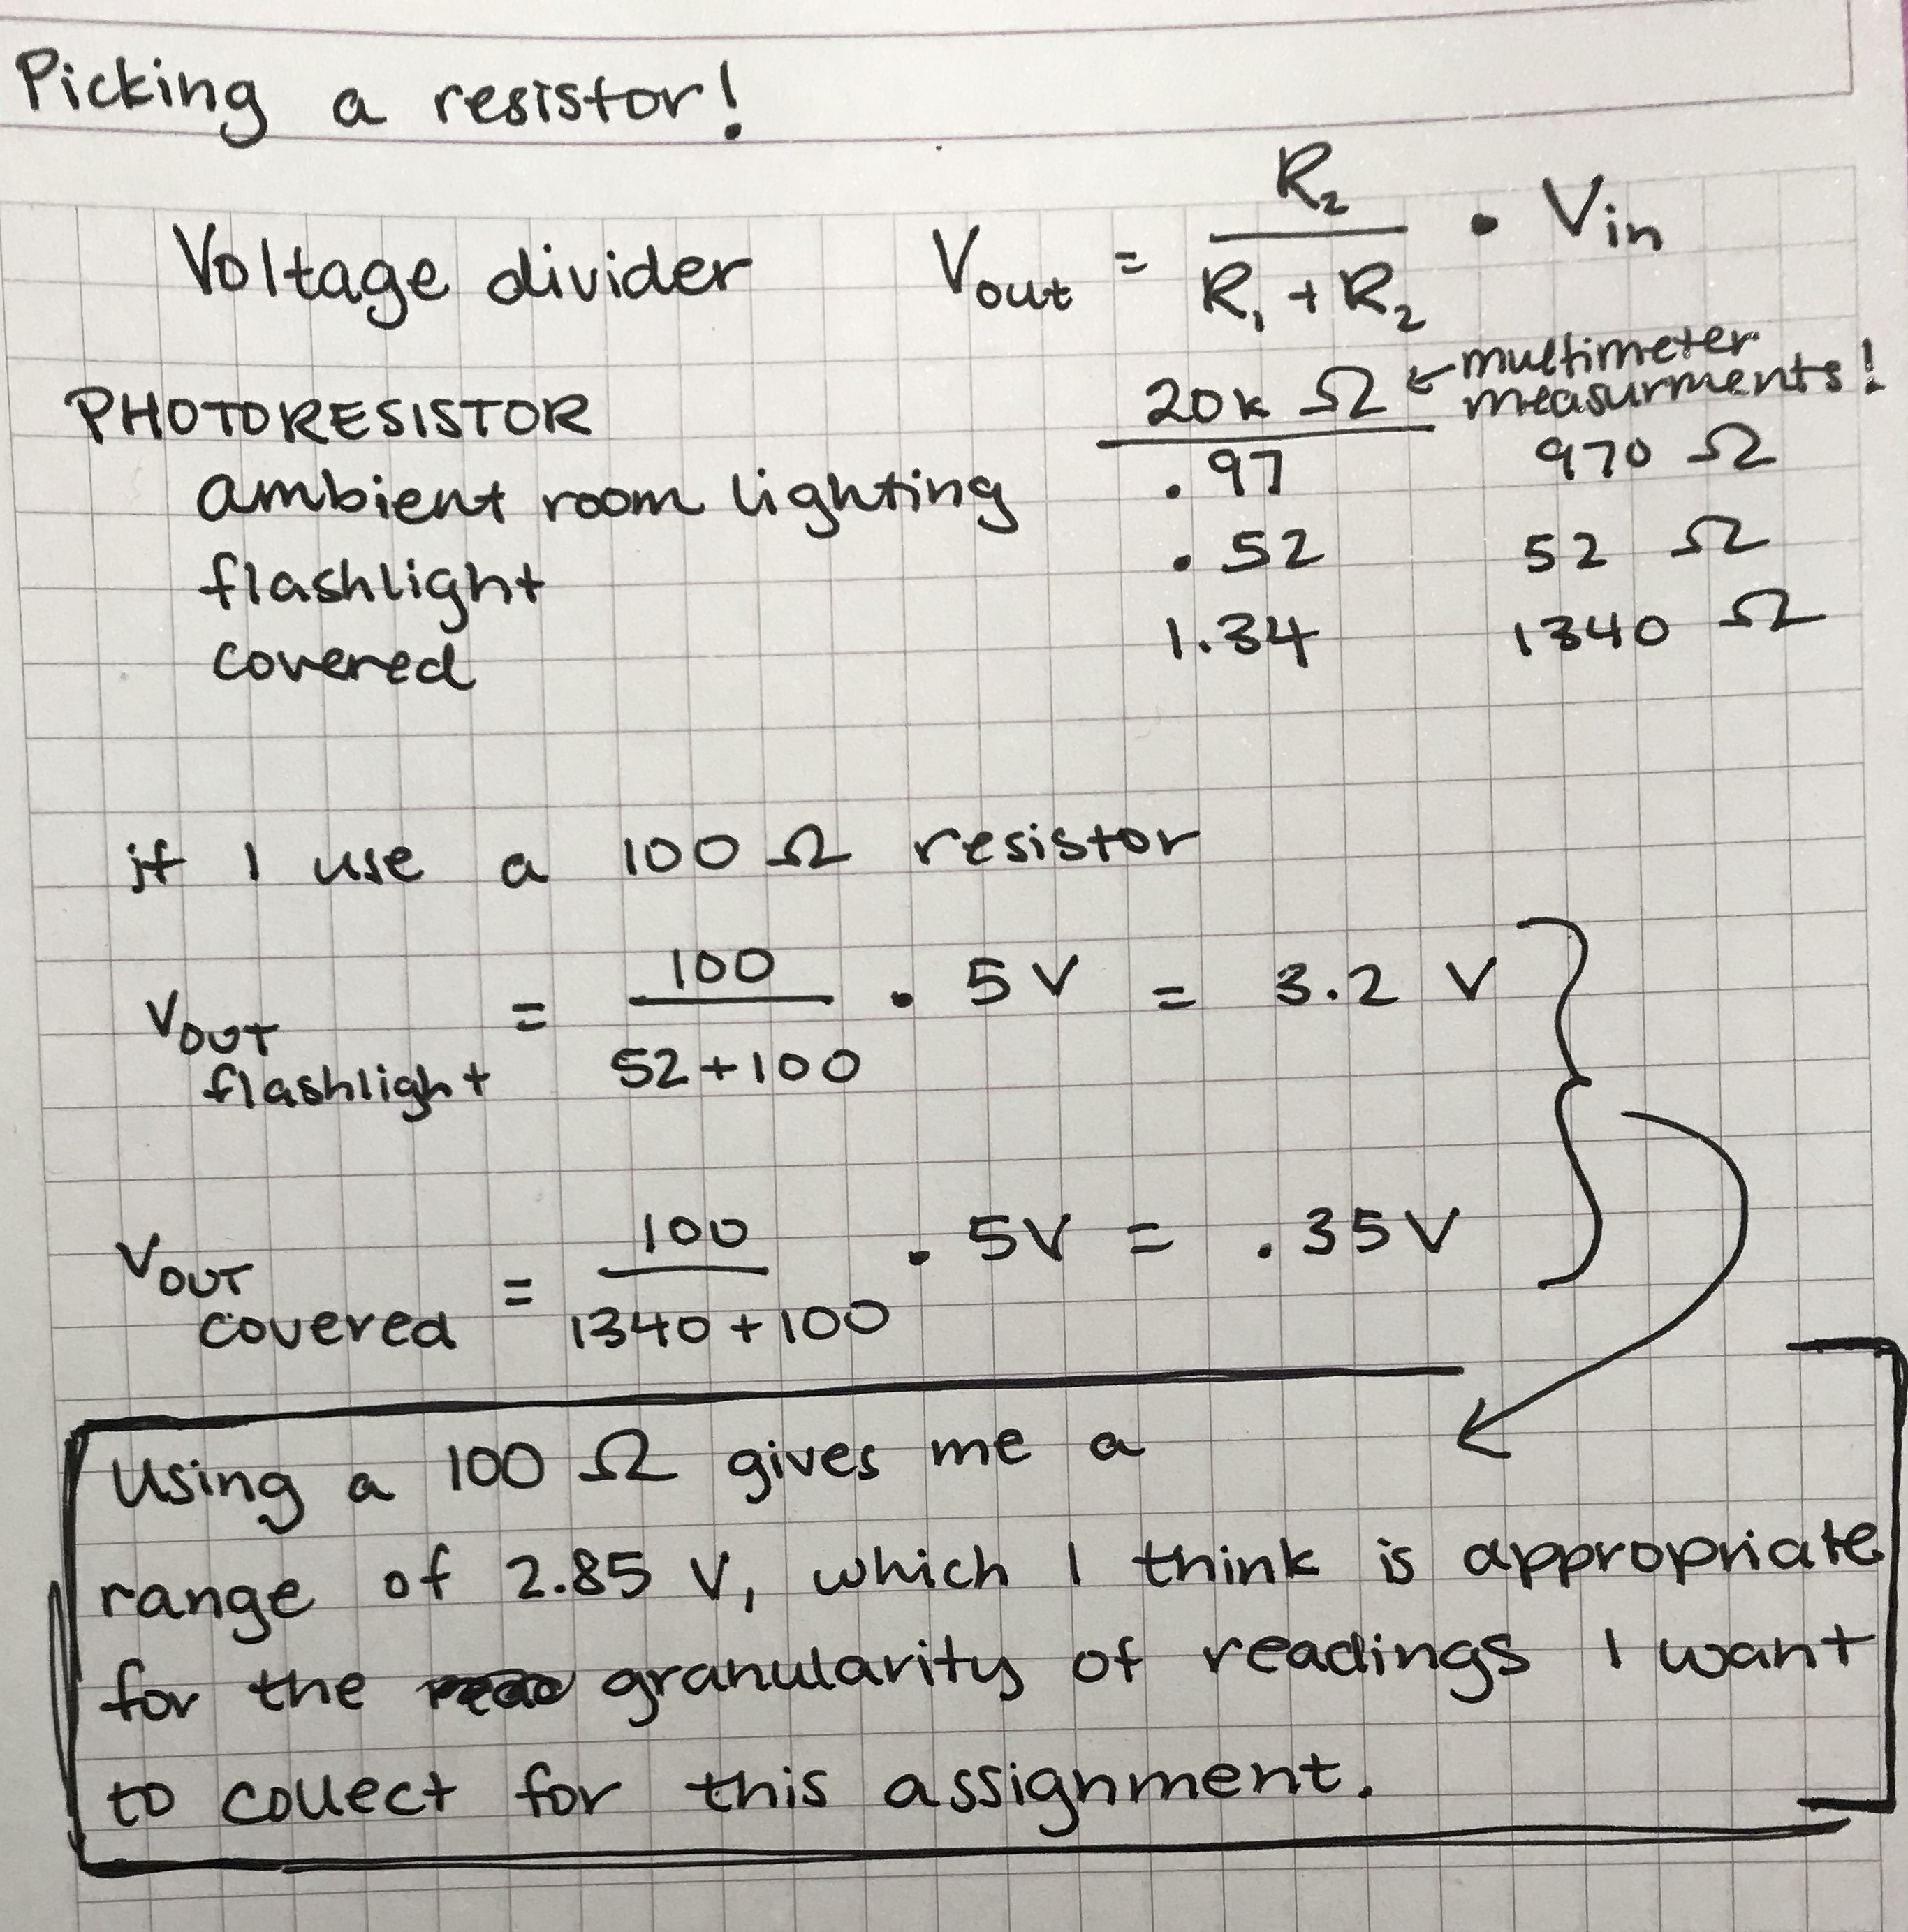 Picking a resistor!
Voltage divider Vout = R2 / R1 + R2 • Vin
PHOTORESISTOR 20k Ω ← multimeter measurments!
ambient room lighting .97 970 Ω
flashlight .52 52 Ω
covered 1.34 1340 Ω
if I use a 100 Ω resistor
VOUT flashlight = 100 / 52+100 • 5V = 3.2 V
VOUT covered = 100 / 1340+100 • 5V = .35V
Using a 100 Ω gives me a
range of 2.85 V, which I think is appropriate
for the granularity of readings I want
to collect for this assignment.